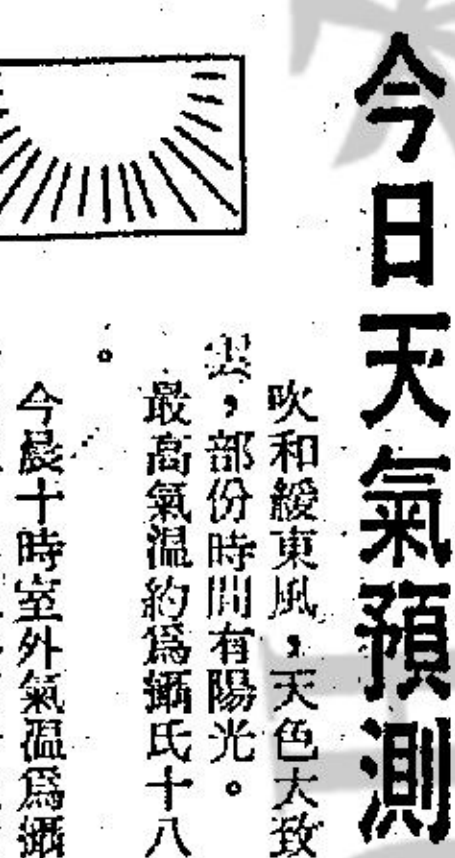 今日天氣預測
吹和緩東風，天色大致
雲，部份時間有陽光。
最高氣温約爲攝氏十八
。
今晨十時室外氣温爲攝